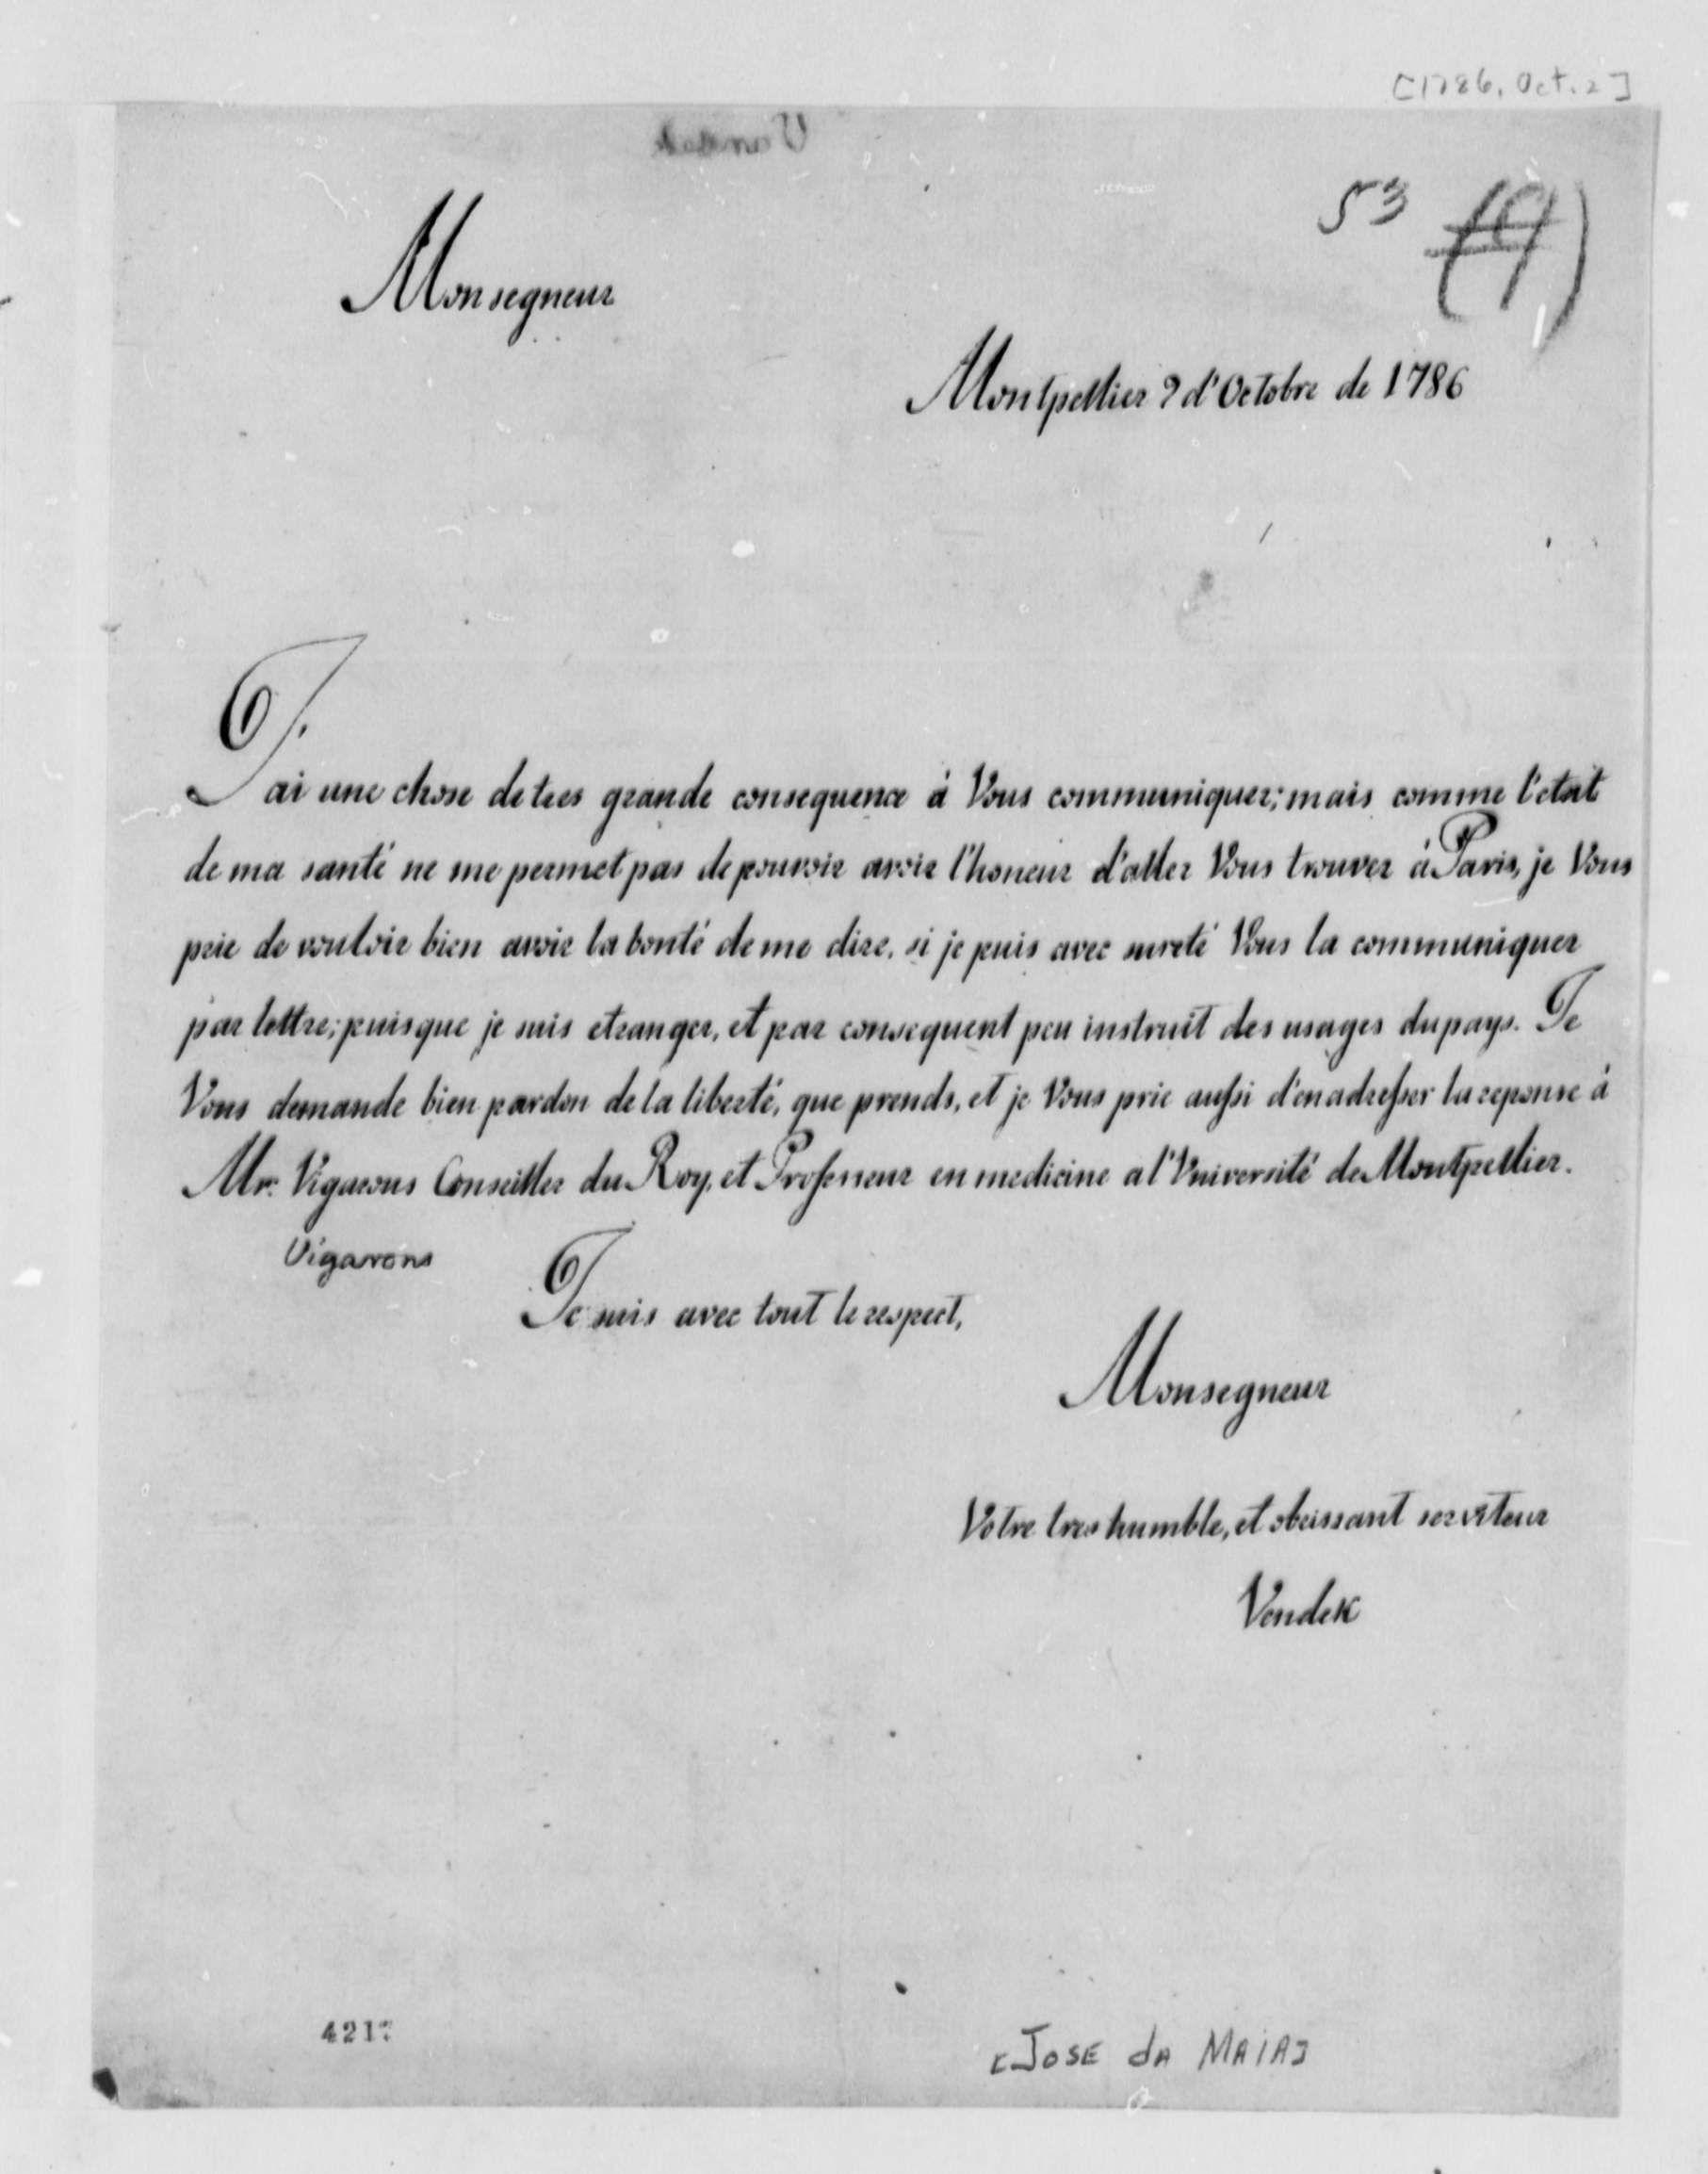 [1786, Oct. 2]
53 (9)
Monsegneur
Montpellier 2 d'Octobre de 1786
J'ai une chose de tres grande consequence à Vous communiquer; mais comme l'etat
de ma santé ne me permet pas de pouvoir avoir l'honeur d'aller Vous trouver à Paris, je Vous
prie de vouloir bien avoir la bonté de me dire, si je puis avec sureté Vous la communiquer
par lettre; puisque je suis etranger, et par consequent peu instruit des usages du pays. Je
Vous demande bien pardon de la liberté, que prends, et je Vous prie aussi d'en adresser la reponse à
Mr. Vigarous Conseiller du Roy, et Professeur en medicine a l'Université de Montpellier.
Vigarons
Je suis avec tout le respect,
Monsegneur
Votre tres humble, et obeissant serviteur
Vendek
421
[JOSE dA MAIA]